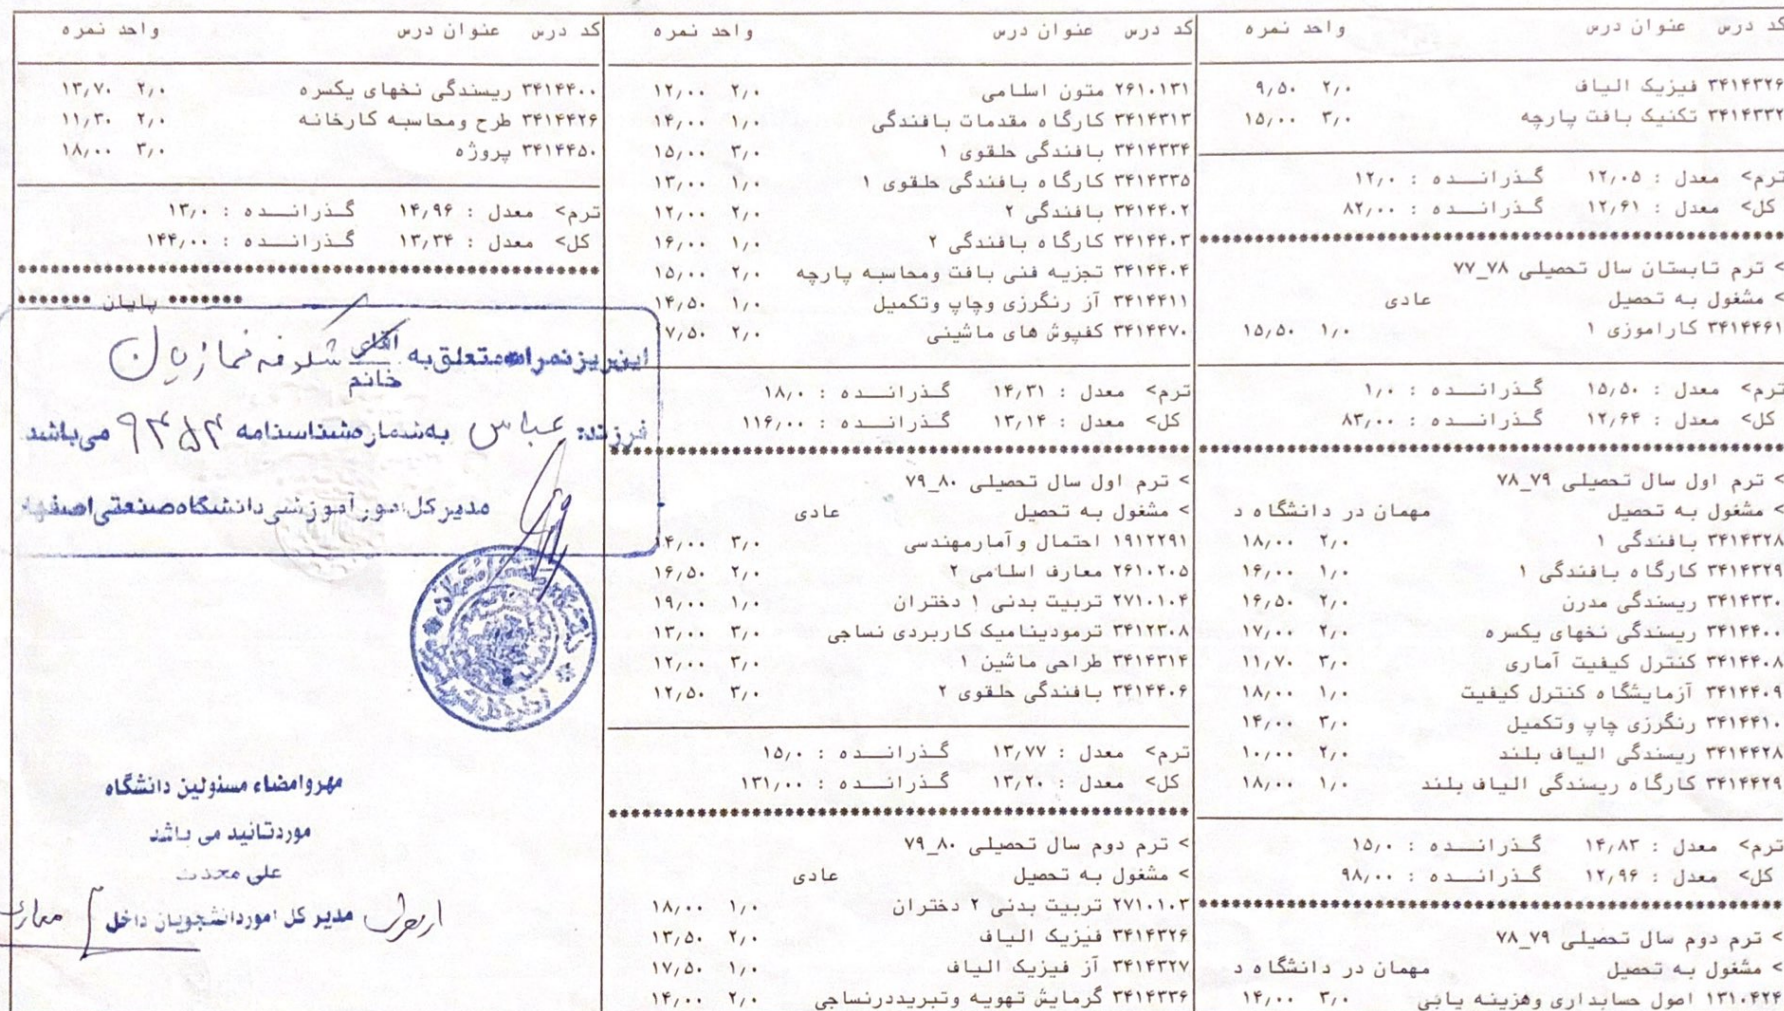 کد درس عنوان درس واحد نمره
۳۴۱۴۳۲۶ فیزیک الیاف ۲٫۰ ۹٫۵۰
۳۴۱۴۳۳۲ تکنیک بافت پارچه ۳٫۰ ۱۵٫۰۰
ترم> معدل : ۱۲٫۰۵ گذرانده : ۱۲٫۰
کل> معدل : ۱۲٫۶۱ گذرانده : ۸۲٫۰۰
> ترم تابستان سال تحصیلی ۷۸_۷۷
> مشغول به تحصیل عادی
۳۴۱۴۴۶۱ کاراموزی ۱ ۱٫۰ ۱۵٫۵۰
ترم> معدل : ۱۵٫۵۰ گذرانده : ۱٫۰
کل> معدل : ۱۲٫۶۴ گذرانده : ۸۳٫۰۰
> ترم اول سال تحصیلی ۷۹_۷۸
> مشغول به تحصیل مهمان در دانشگاه د
۳۴۱۴۳۲۸ بافندگی ۱ ۲٫۰ ۱۸٫۰۰
۳۴۱۴۳۲۹ کارگاه بافندگی ۱ ۱٫۰ ۱۶٫۰۰
۳۴۱۴۳۳۰ ریسندگی مدرن ۲٫۰ ۱۶٫۵۰
۳۴۱۴۴۰۰ ریسندگی نخهای یکسره ۲٫۰ ۱۷٫۰۰
۳۴۱۴۴۰۸ کنترل کیفیت آماری ۳٫۰ ۱۱٫۷۰
۳۴۱۴۴۰۹ آزمایشگاه کنترل کیفیت ۱٫۰ ۱۸٫۰۰
۳۴۱۴۴۱۰ رنگرزی چاپ وتکمیل ۳٫۰ ۱۴٫۰۰
۳۴۱۴۴۲۸ ریسندگی الیاف بلند ۲٫۰ ۱۰٫۰۰
۳۴۱۴۴۲۹ کارگاه ریسندگی الیاف بلند ۱٫۰ ۱۸٫۰۰
ترم> معدل : ۱۴٫۸۳ گذرانده : ۱۵٫۰
کل> معدل : ۱۲٫۹۶ گذرانده : ۹۸٫۰۰
> ترم دوم سال تحصیلی ۷۹_۷۸
> مشغول به تحصیل مهمان در دانشگاه د
۱۳۱۰۴۲۴ اصول حسابداری وهزینه یابی ۳٫۰ ۱۴٫۰۰
کد درس عنوان درس واحد نمره
۲۶۱۰۱۳۱ متون اسلامی ۲٫۰ ۱۲٫۰۰
۳۴۱۴۳۱۳ کارگاه مقدمات بافندگی ۱٫۰ ۱۴٫۰۰
۳۴۱۴۳۳۴ بافندگی حلقوی ۱ ۳٫۰ ۱۵٫۰۰
۳۴۱۴۳۳۵ کارگاه بافندگی حلقوی ۱ ۱٫۰ ۱۳٫۰۰
۳۴۱۴۴۰۲ بافندگی ۲ ۲٫۰ ۱۲٫۰۰
۳۴۱۴۴۰۳ کارگاه بافندگی ۲ ۱٫۰ ۱۶٫۰۰
۳۴۱۴۴۰۴ تجزیه فنی بافت ومحاسبه پارچه ۲٫۰ ۱۵٫۰۰
۳۴۱۴۴۱۱ آز رنگرزی وچاپ وتکمیل ۱٫۰ ۱۴٫۵۰
۳۴۱۴۴۷۰ کفپوش های ماشینی ۲٫۰ ۷٫۵۰
ترم> معدل : ۱۴٫۳۱ گذرانده : ۱۸٫۰
کل> معدل : ۱۳٫۱۴ گذرانده : ۱۱۶٫۰۰
> ترم اول سال تحصیلی ۸۰_۷۹
> مشغول به تحصیل عادی
۱۹۱۲۲۹۱ احتمال وآمارمهندسی ۳٫۰ ۱۴٫۰۰
۲۶۱۰۲۰۵ معارف اسلامی ۲ ۲٫۰ ۱۶٫۵۰
۲۷۱۰۱۰۴ تربیت بدنی ۱ دختران ۱٫۰ ۱۹٫۰۰
۳۴۱۲۳۰۸ ترمودینامیک کاربردی نساجی ۳٫۰ ۱۳٫۰۰
۳۴۱۴۳۱۴ طراحی ماشین ۱ ۳٫۰ ۱۲٫۰۰
۳۴۱۴۴۰۶ بافندگی حلقوی ۲ ۳٫۰ ۱۲٫۵۰
ترم> معدل : ۱۳٫۷۷ گذرانده : ۱۵٫۰
کل> معدل : ۱۳٫۲۰ گذرانده : ۱۳۱٫۰۰
> ترم دوم سال تحصیلی ۸۰_۷۹
> مشغول به تحصیل عادی
۲۷۱۰۱۰۳ تربیت بدنی ۲ دختران ۱٫۰ ۱۸٫۰۰
۳۴۱۴۳۲۶ فیزیک الیاف ۲٫۰ ۱۳٫۵۰
۳۴۱۴۳۲۷ آز فیزیک الیاف ۱٫۰ ۱۷٫۵۰
۳۴۱۴۳۳۶ گرمایش تهویه وتبریددرنساجی ۲٫۰ ۱۴٫۰۰
کد درس عنوان درس واحد نمره
۳۴۱۴۴۰۰ ریسندگی نخهای یکسره ۲٫۰ ۱۳٫۷۰
۳۴۱۴۴۲۶ طرح ومحاسبه کارخانه ۲٫۰ ۱۱٫۳۰
۳۴۱۴۴۵۰ پروژه ۳٫۰ ۱۸٫۰۰
ترم> معدل : ۱۴٫۹۶ گذرانده : ۱۳٫۰
کل> معدل : ۱۳٫۳۴ گذرانده : ۱۴۴٫۰۰
******* پایان *******
این ریز نمرات متعلق به آقای خانم شکوفه نمازیان
فرزند عباس به شماره شناسنامه ۹۴۵۴ می باشد
مدیر کل امور آموزشی دانشگاه صنعتی اصفهان
مهروامضاء مسئولین دانشگاه
موردتائید می باشد
علی محدث
مدیر کل اموردانشجویان داخل